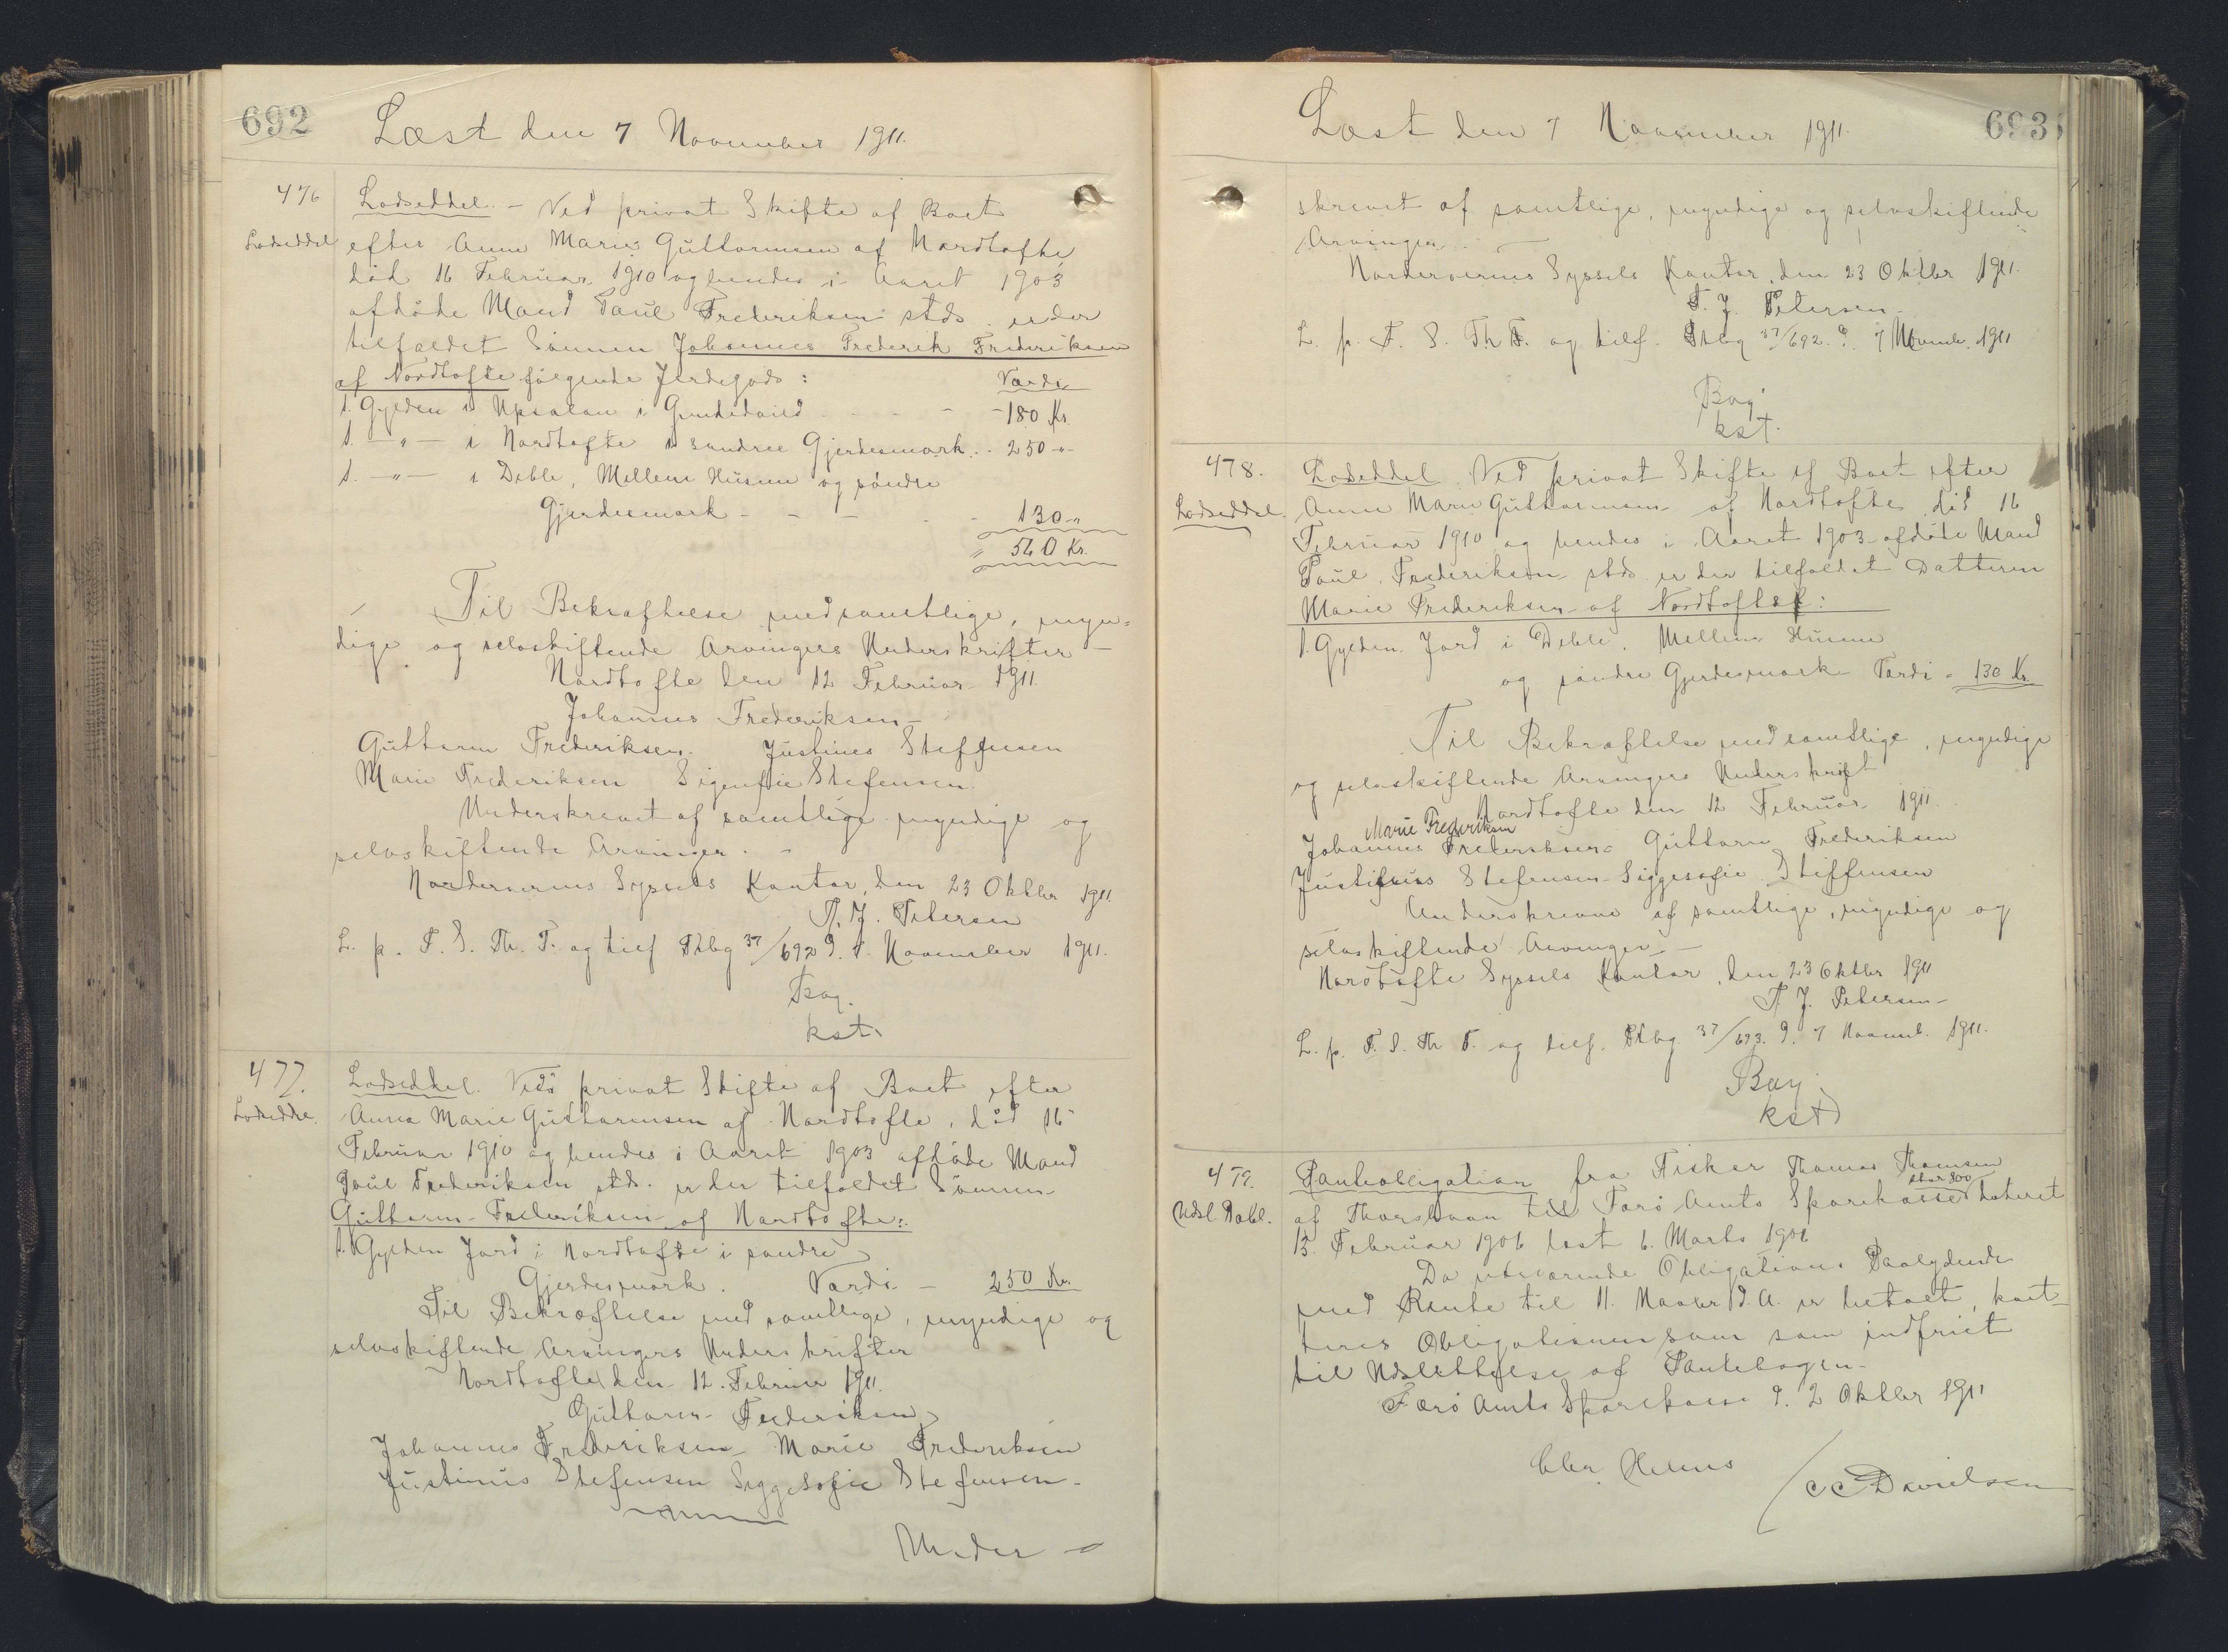 692
Læst den 7 November 1911.
476
Lodseddel
Lodseddel. - Ved privat Skifte af Boet
efter Anne Marie Guttormsen af Nordtofte
död 16 Februar 1910 og hendes i Aaret 1903
afdöde Mand Poul Frederiksen stds. er der
tilfaldet Sönnen Johannes Frederik Frederiksen
af Nordtofte fölgende Jordegods:
Værdi
1. Gylden i Upsalen i - 180 Kr.
1. -"- i Nordtofte i søndre Gjerdesmark. . 250 -"-
1. -"- i Deble, Mellem Husene og söndre
Gjerdesmark - - - - 130 -"-
= 560 Kr.
Til Bekræftelse med samtlige, myn=
dige og selvskiftende Arvingers Underskrifter -
Nordtofte den 12 Februar 1911
Johannes Frederiksen -
Guttorm Frederiksen. Justines Steffensen
Marie Frederiksen Stefensen.
Underskrevet af samtlige myndige og
selvskiftende Arvinger. -
Norderoernes Syssels Kontor, den 23 Oktbr 1911.
P. J. Petersen
L. p. F. S. Th. T. og tilf Skbg 37/692 d. 7. November 1911.
Bög.
kst.
477.
Lodseddel.
Lodseddel. Ved privat Skifte af Boet efter
Anna Marie Guttormsen af Nordtofte, död 16
Februar 1910 og hendes i Aaret 1903 afdöde Mand
Poul Frederiksen stds. er der tilfaldet Sönnen
Guttorm Frederiksen af Nordtofte:
1. Gylden Jord i Nordtofte i søndre
Gjerdesmark. Værdi - 250 Kr.
Til Bekræftelse med samtlige, myndige og
selvskiftende Arvingers Underskrifter
Nordtofte den 12. Februar 1911.
Guttorm Frederiksen
Johannes Frederiksen Marie Frederiksen
Justinus Stefensen Siggesofie Stefensen -
Under -
Læst den 7 November 1911.
693
skrevet af samtlige, myndige og selvskiftende
Arvinger. -
Norderoernes Syssels Kontor, den 23 Oktbr 1911.
P. J. Petersen -
L. p. F. S. Th T. og tilf. Skbg 37/692. d. 7 Novemb. 1911
Bög
kst.
478.
Lodseddel.
Lodseddel. Ved privat Skifte af Boet efter
Anne Marie Guttormsen af Nordtofte död 16
Februar 1910 og hendes i Aaret 1903 afdöde Mand
Poul Frederiksen stds. er der tilfaldet Datteren
Marie Frederiksen af Nordtofte:
1. Gylden Jord i Deble. Mellem Husene
og söndre Gjerdesmark Værdi = 130 Kr.
Til Bekræftelse med samtlige, myndige
og selvskiftende Arvingers Underskrift
Nordtofte den 12 Februar 1911.
Marie Frederiksen
Johannes Frederiksen - Guttorm Frederiksen
Justinus Stefensen Siggesofie Steffensen
Underskrevne af samtlige, myndige og
selvskiftende Arvinger -
Nordtofte Syssels Kontor, den 23 Oktbr 1911
P. J. Petersen -
L. p. F. S. Th T. og tilf. Skbg. 37/693. d. 7 Novemb. 1911.
Bög
kst
479.
Udsl. Pobl.
Panteobligation fra Fisker Thomas Thomsen
stor 800
af Thorshavn til Færö Amts Sparekasse dateret
13. Februar 1906 læst 6. Marts 1906
Da nærværende Obligations Paalydende
med Rente til 11. Novbr d. A. er betalt, kvit-
teres Obligationen som som indfriet
til Udslettelse af Pantebogen -
Færö Amts Sparekasse d. 2 Oktbr 1911
Chr. Helms
/ C C Danielsen